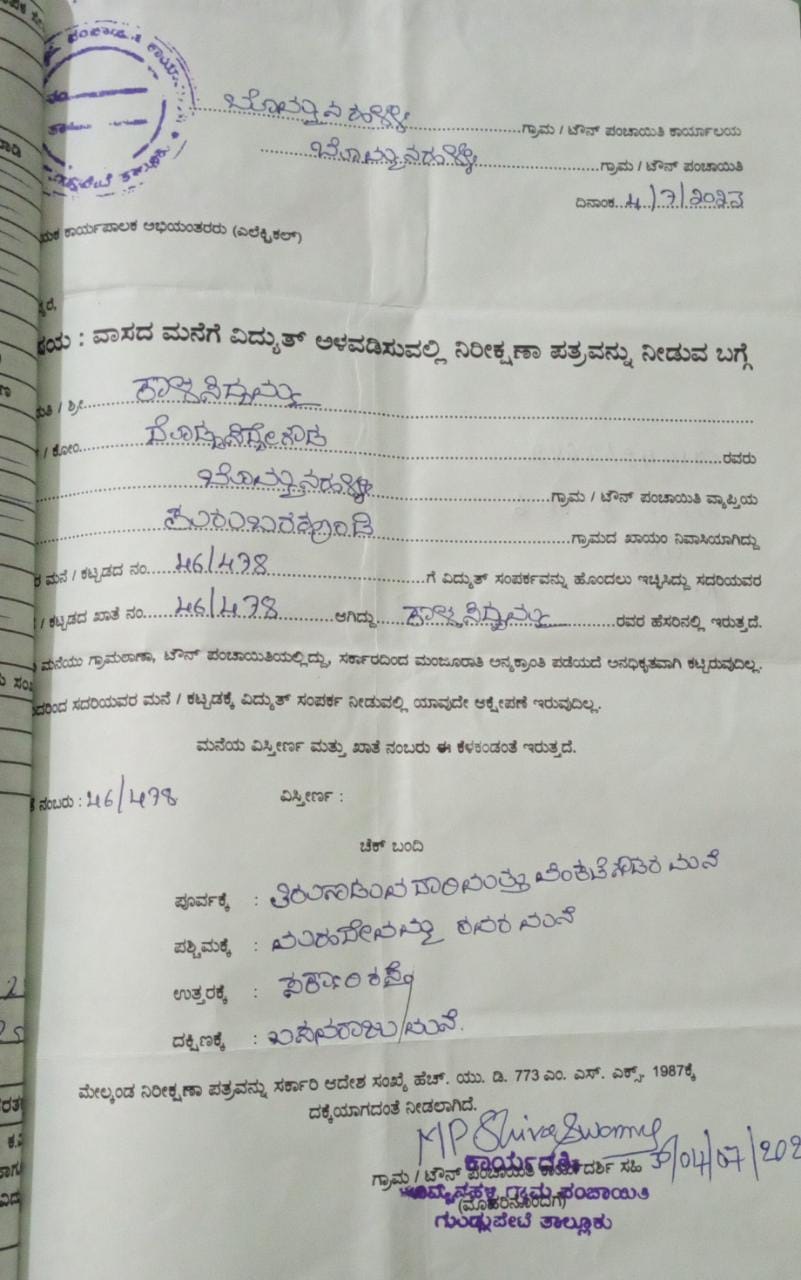 ಬೊಮ್ಮನಹಳ್ಳಿ ಗ್ರಾಮ / ಟೌನ್ ಪಂಚಾಯಿತಿ ಕಾರ್ಯಾಲಯ
ಬೊಮ್ಮನಹಳ್ಳಿ ಗ್ರಾಮ / ಟೌನ್ ಪಂಚಾಯಿತಿ
ದಿನಾಂಕ 4/7/2023
ಕಾರ್ಯಪಾಲಕ ಅಭಿಯಂತರರು (ಎಲೆಕ್ಟ್ರಿಕಲ್)
: ವಾಸದ ಮನೆಗೆ ವಿದ್ಯುತ್ ಅಳವಡಿಸುವಲ್ಲಿ ನಿರೀಕ್ಷಣಾ ಪತ್ರವನ್ನು ನೀಡುವ ಬಗ್ಗೆ
/ ಶ್ರೀ ಕಾಳಸಿದ್ದಮ್ಮ
/ ಕೋಂ ದೊಡ್ಡಸಿದ್ದೇಗೌಡ ರವರು
ಬೊಮ್ಮನಹಳ್ಳಿ ಗ್ರಾಮ / ಟೌನ್ ಪಂಚಾಯಿತಿ ವ್ಯಾಪ್ತಿಯ
ಕುರುಬರಹುಂಡಿ ಗ್ರಾಮದ ಖಾಯಂ ನಿವಾಸಿಯಾಗಿದ್ದು
ಮನೆ / ಕಟ್ಟಡದ ನಂ. 46/478 ಗೆ ವಿದ್ಯುತ್ ಸಂಪರ್ಕವನ್ನು ಹೊಂದಲು ಇಚ್ಛಿಸಿದ್ದು ಸದರಿಯವರ
/ ಕಟ್ಟಡದ ಖಾತೆ ನಂ. 46/478 ಆಗಿದ್ದು ಕಾಳಸಿದ್ದಮ್ಮ ರವರ ಹೆಸರಿನಲ್ಲಿ ಇರುತ್ತದೆ.
ಮನೆಯು ಗ್ರಾಮಠಾಣಾ, ಟೌನ್ ಪಂಚಾಯಿತಿಯಲ್ಲಿದ್ದು, ಸರ್ಕಾರದಿಂದ ಮಂಜೂರಾತಿ ಅನ್ಯಕ್ರಾಂತಿ ಪಡೆಯದೆ ಅನಧಿಕೃತವಾಗಿ ಕಟ್ಟಿರುವುದಿಲ್ಲ.
ಸದರಿಯವರ ಮನೆ / ಕಟ್ಟಡಕ್ಕೆ ವಿದ್ಯುತ್ ಸಂಪರ್ಕ ನೀಡುವಲ್ಲಿ ಯಾವುದೇ ಆಕ್ಷೇಪಣೆ ಇರುವುದಿಲ್ಲ.
ಮನೆಯ ವಿಸ್ತೀರ್ಣ ಮತ್ತು ಖಾತೆ ನಂಬರು ಈ ಕೆಳಕಂಡಂತೆ ಇರುತ್ತದೆ.
ನಂಬರು : 46/478 ವಿಸ್ತೀರ್ಣ :
ಚೆಕ್ ಬಂದಿ
ಪೂರ್ವಕ್ಕೆ : ತಿರುಗಾಡುವ ದಾರಿ ಮತ್ತು ವೆಂಕಟೆಗೌಡರ ಮನೆ
ಪಶ್ಚಿಮಕ್ಕೆ : ಮರಿದೇವಮ್ಮ ರವರ ಮನೆ
ಉತ್ತರಕ್ಕೆ : ಸರ್ಕಾರಿ ರಸ್ತೆ
ದಕ್ಷಿಣಕ್ಕೆ : ಬಸವರಾಜು ಮನೆ.
ಮೇಲ್ಕಂಡ ನಿರೀಕ್ಷಣಾ ಪತ್ರವನ್ನು ಸರ್ಕಾರಿ ಆದೇಶ ಸಂಖ್ಯೆ ಹೆಚ್. ಯು. ಡಿ. 773 ಎಂ. ಎಸ್. ಎಕ್ಸ್. 1987ಕ್ಕೆ
ದಕ್ಕೆಯಾಗದಂತೆ ನೀಡಲಾಗಿದೆ.
MP Shiva Swamy
04/07/202
ಕಾರ್ಯದರ್ಶಿ
ಗ್ರಾಮ / ಟೌನ್ ಪಂಚಾಯಿತಿ ಕಾರ್ಯದರ್ಶಿ ಸಹಿ
ಬೊಮ್ಮನಹಳ್ಳಿ ಗ್ರಾಮ ಪಂಚಾಯಿತಿ
(ಮೊಹರಿನೊಂದಿಗೆ)
ಗುಂಡ್ಲುಪೇಟೆ ತಾಲ್ಲೂಕು